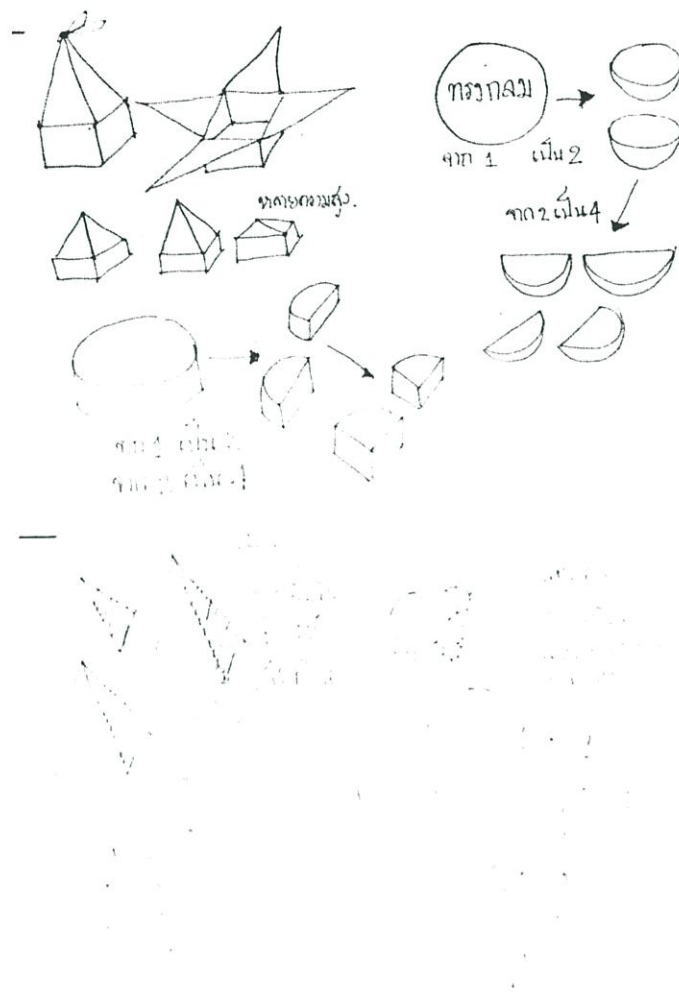 ทรงกลม
จาก 1 เป็น 2
จาก 2 เป็น 4
หลายความสูง.
จาก 1 เป็น 2
จาก 2 เป็น 4